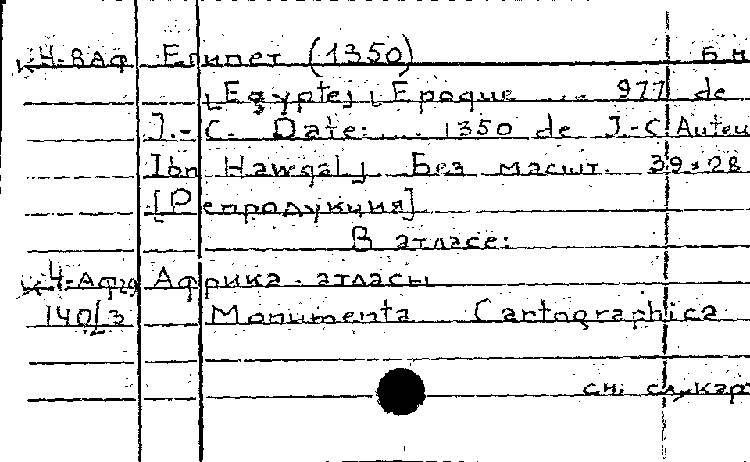 К4-8Аф Египет (1350) Б.Н
[Egypte] [Epoque ... 977 de
J.-C. Date: ... 1350 de J.-C Auteu
Ibn Hawqal] Без масшт. 39×28
[Репродукция]
В атласе:
К4-Аф29 Африка - атласы
140/3 Monumenta Cartographica
см. сл. кар